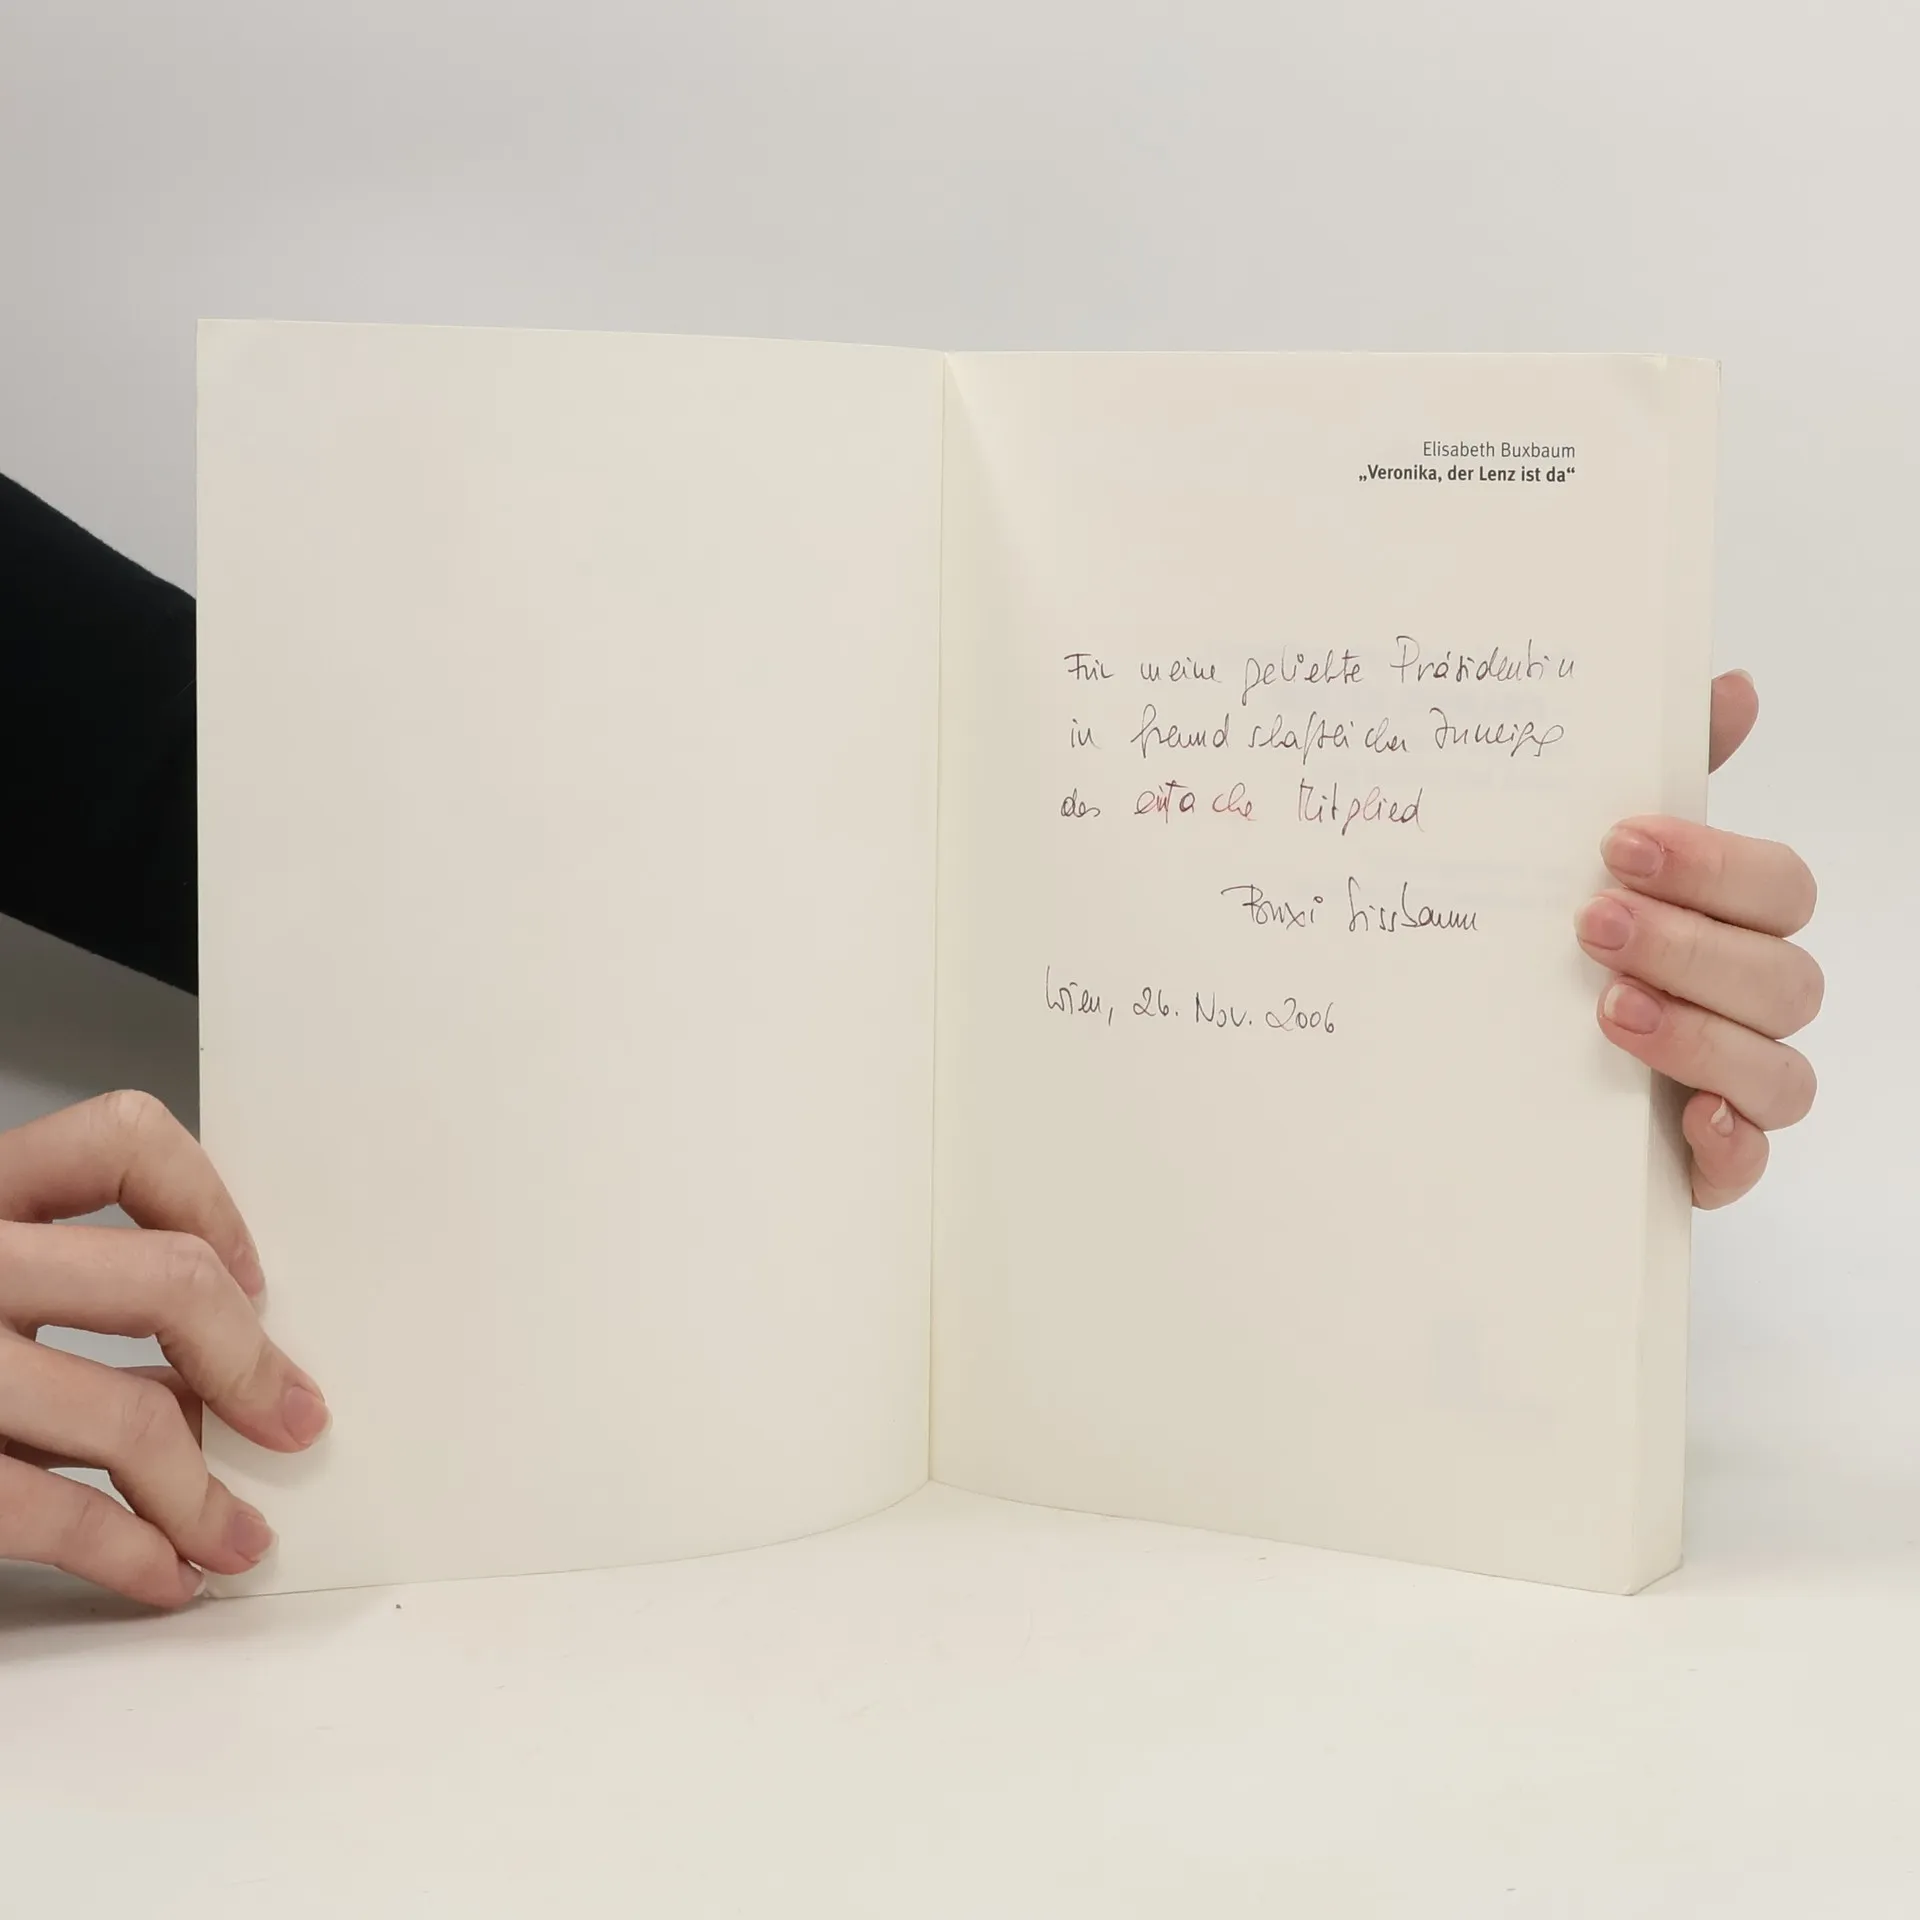 Elisabeth Buxbaum
„Veronika, der Lenz ist da“
Für meine geliebte Präsidentin
in freundschaftlicher Zuneigg
das einfache Mitglied
Buxi Lissbaum
Wien, 26. Nov. 2006